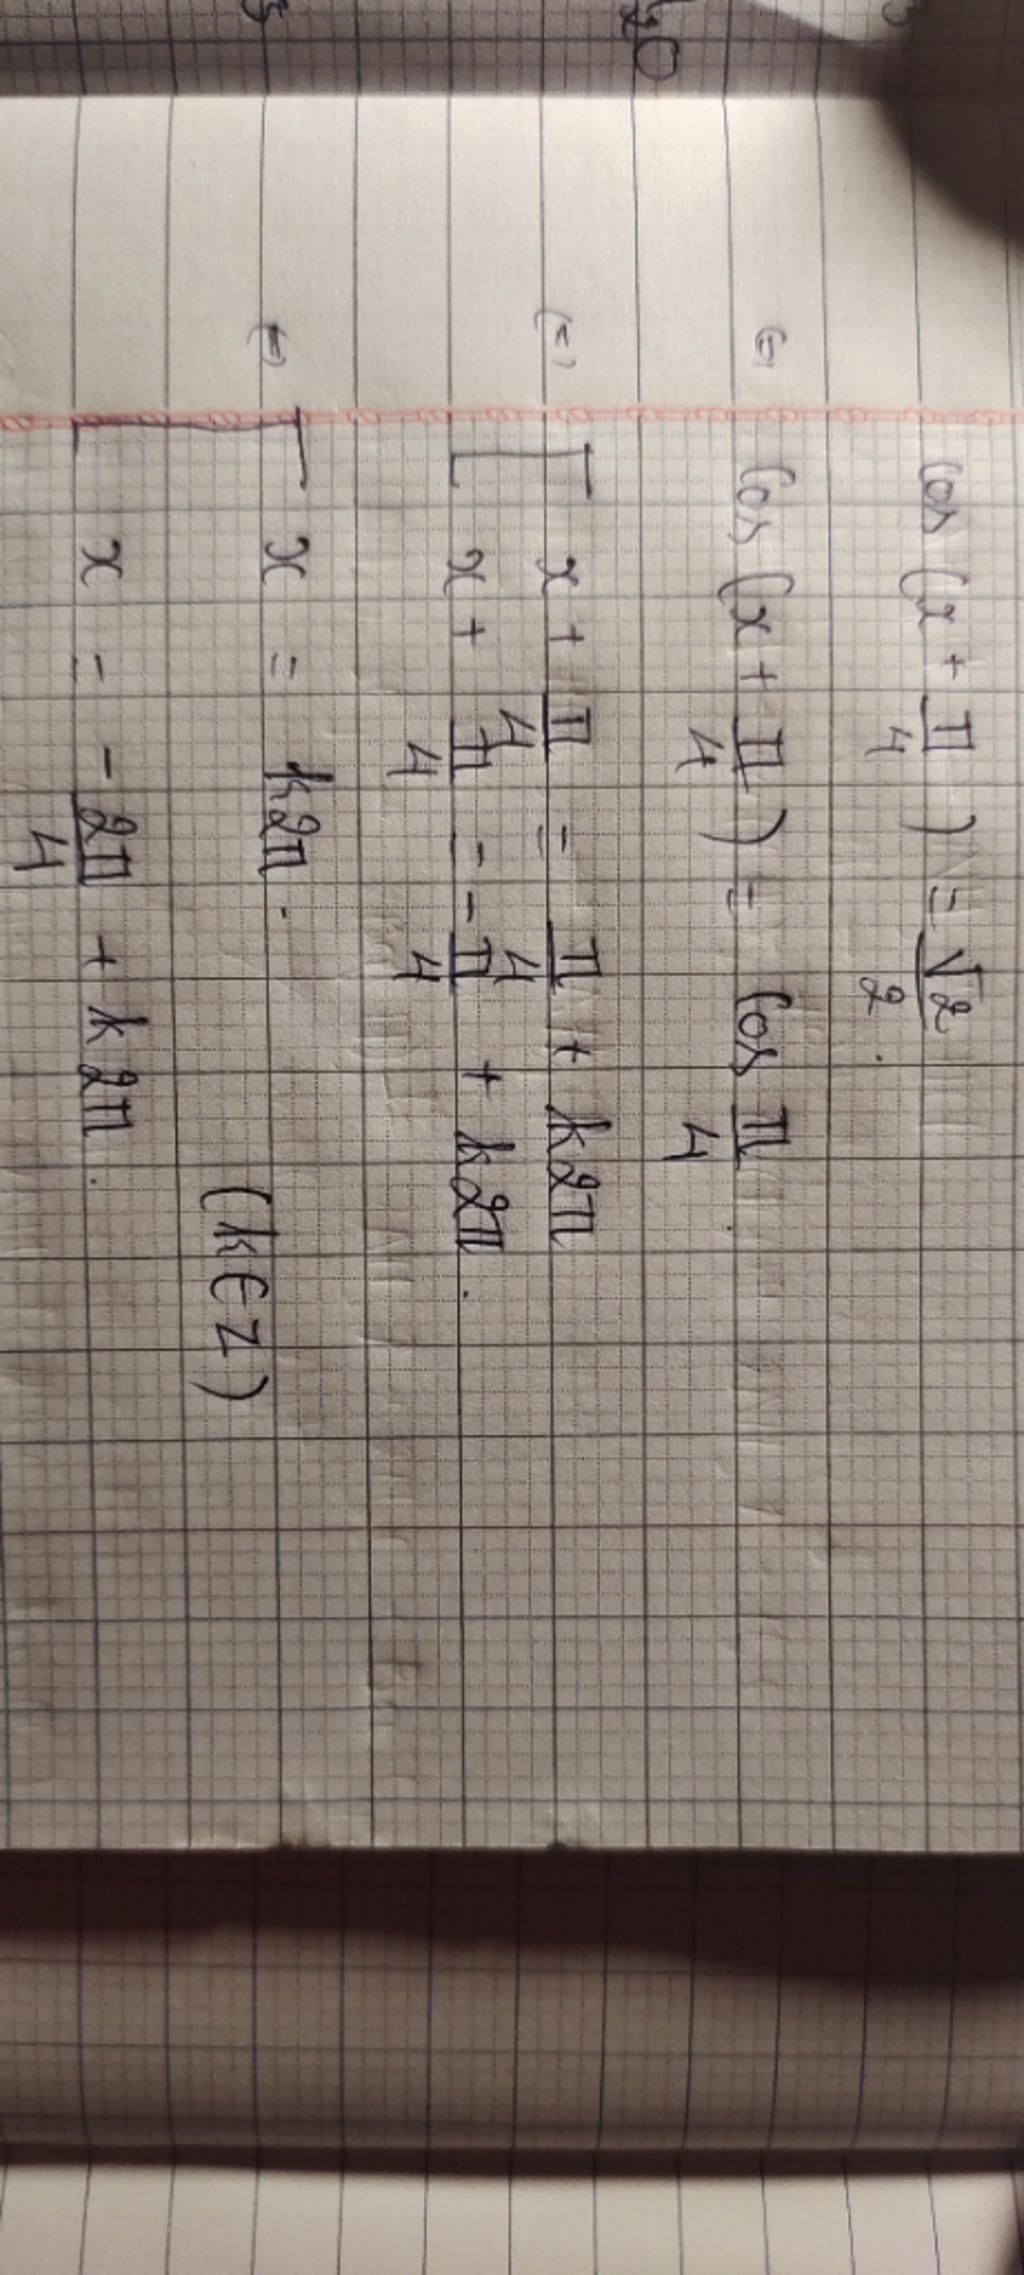 cos (x + π/4) = √2/2.
(=) cos (x + π/4) = cos π/4.
(=) [ x + π/4 = π/4 + k2π
x + π/4 = -π/4 + k2π.
(=) [ x = k2π.
(k ∈ Z)
x = -2π/4 + k2π.